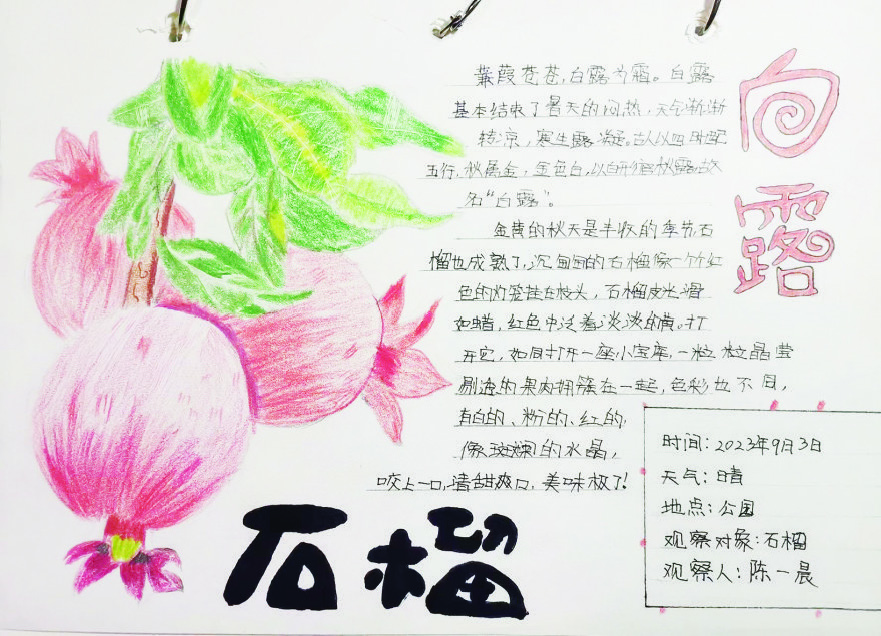 白露
蒹葭苍苍,白露为霜。白露
基本结束了暑天的闷热,天气渐渐
转凉,寒生露凝。古人以四时配
五行,秋属金,金色白,以白形容秋露,故
名“白露”。
金黄的秋天是丰收的季节,石
榴也成熟了,沉甸甸的石榴像一个个红
色的灯笼挂在枝头,石榴皮光滑
如蜡,红色中泛着淡淡的黄。打
开它,如同打开一座小宝库,一粒粒晶莹
剔透的果肉拥簇在一起,色彩也不同,
有白的、粉的、红的,
像斑斓的水晶,
咬上一口,清甜爽口,美味极了!
时间:2023年9月3日
天气:晴
地点:公园
观察对象:石榴
观察人:陈一晨
石榴